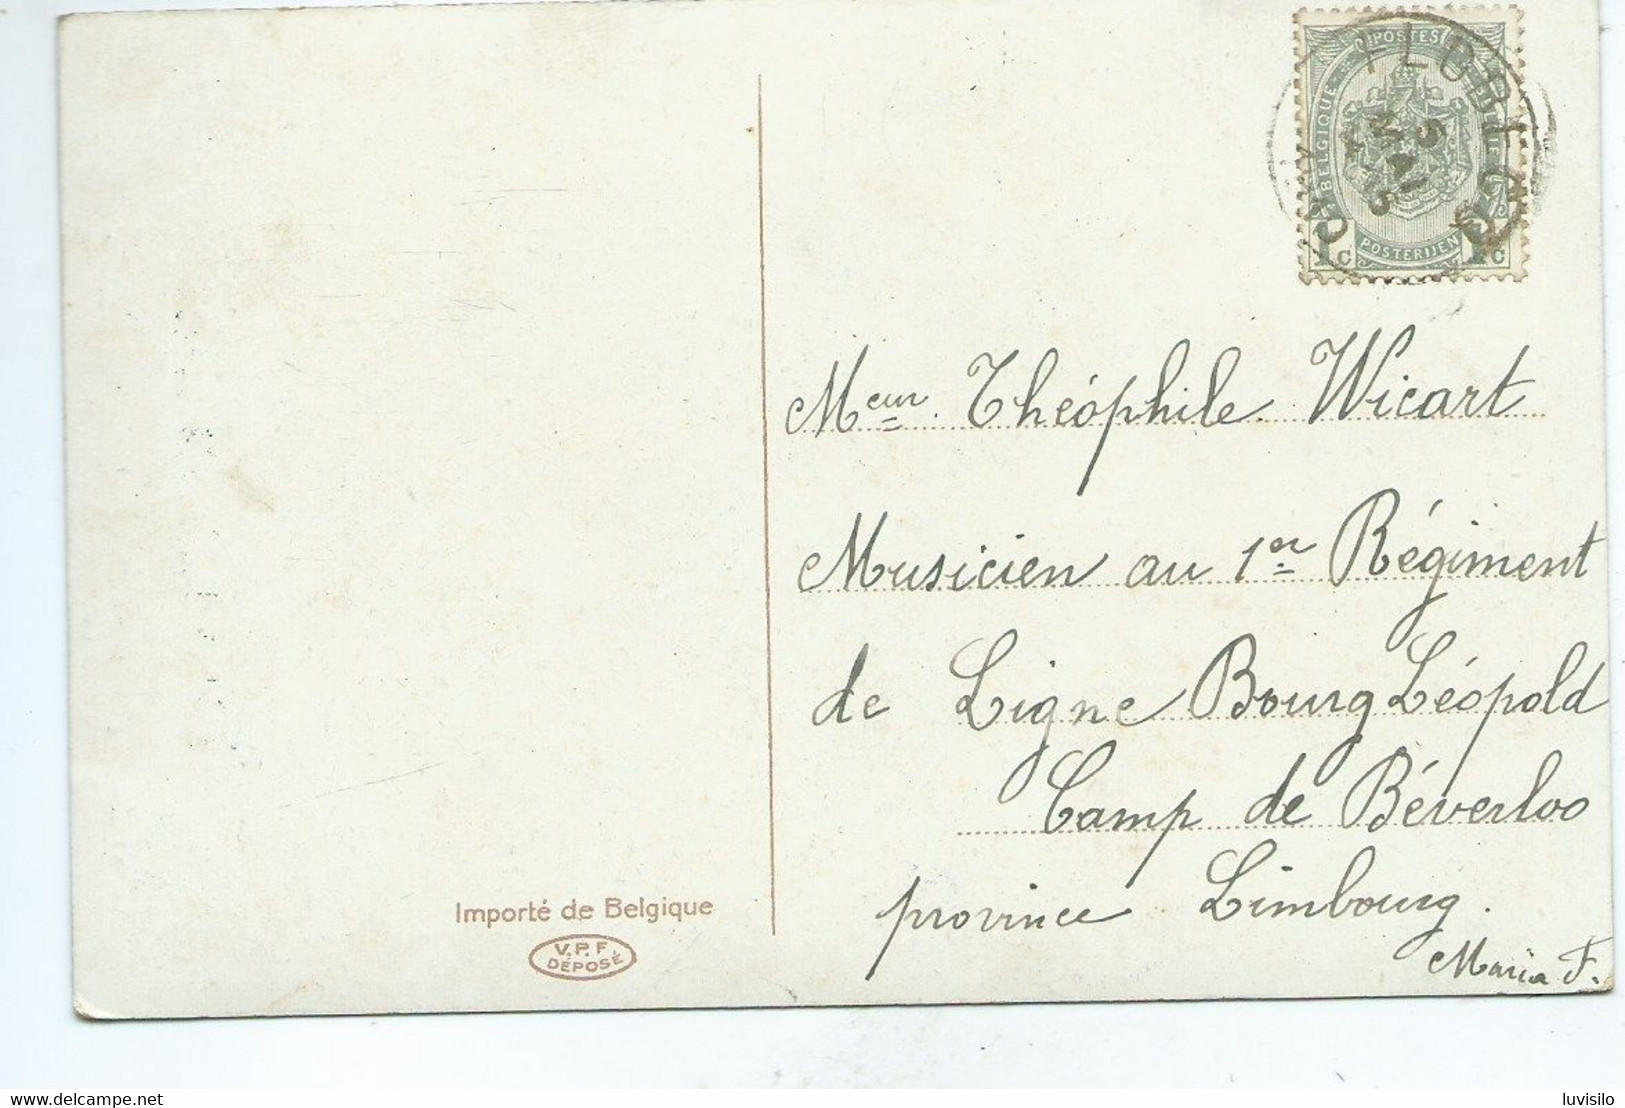 POSTES
BELGIQUE
POSTERIJEN
1c 1c
FLOBECQ
5
MAI
Meur Théophile Wicart
Musicien au 1er Régiment
de Ligne Bourg Léopold
Camp de Béverloo
province Limbourg.
Maria F.
Importé de Belgique
V.P.F.
DÉPOSÉ
delcampe.net
luvisilo